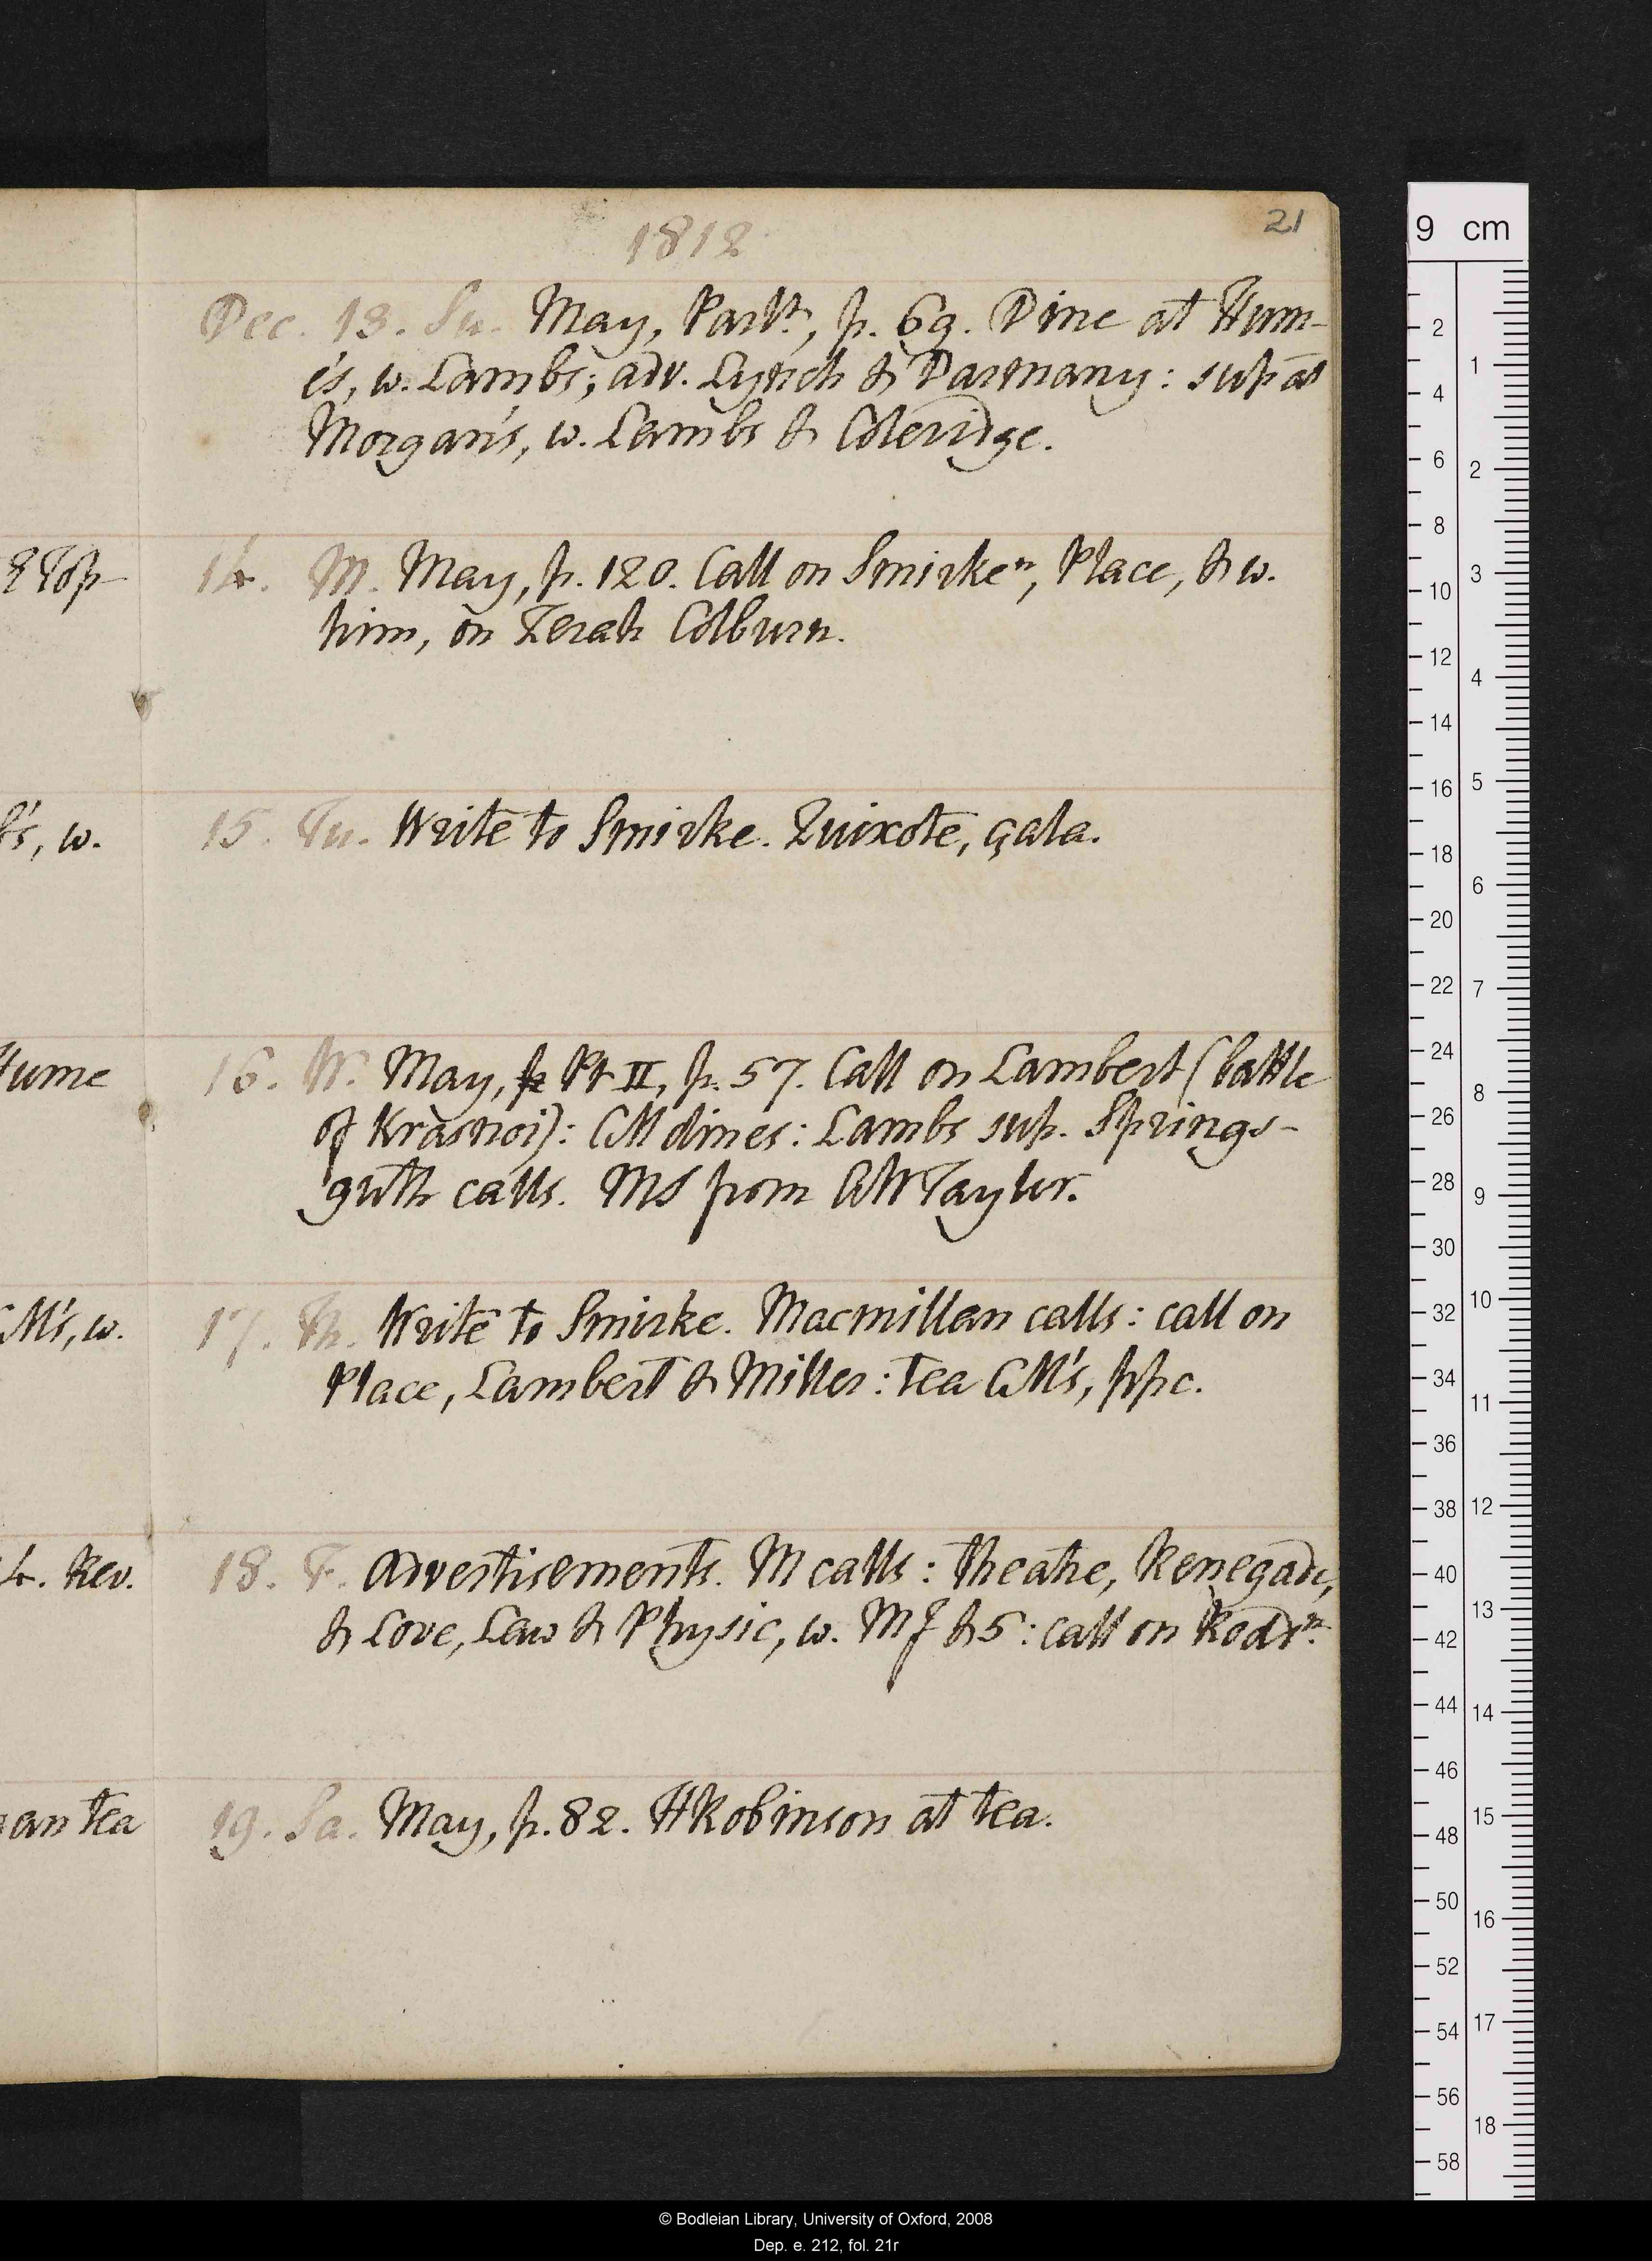 1812
21
Dec. 13. Su. May, Parlt, p. 69. Dine at Hum-
e's, w. Lambs; adv. Lynch & Parmany: sup at
Morgan's, w. Lambs & Coleridge.
14. M. May, p. 120. Call on Smirke n, Place, & w.
him, on Zerah Colburn.
15. Tu. Write to Smirke. Quixote, çala.
16. W. May, p Pt II, p. 57. Call on Lambert (battle
of Krasnoi): CM dines: Lambs sup. Springs-
guth calls. MS from AW Taylor.
17. Th. Write to Smirke. Macmillan calls: call on
Place, Lambert & Miller: tea CM's, ppc.
18. F. Advertisements. M calls: theatre, Renegade,
& Love, Law & Physic, w. MJ & 5: call on Rodd n.
19. Sa. May, p. 82. HRobinson at tea.
Top
's, w.
Hume
CM's, w.
4. Rev.
an tea
9 cm
2
4
6
8
10
12
14
16
18
20
22
24
26
28
30
32
34
36
38
40
42
44
46
48
50
52
54
56
58
1
2
3
4
5
6
7
8
9
10
11
12
13
14
15
16
17
18
© Bodleian Library, University of Oxford, 2008
Dep. e. 212, fol. 21r